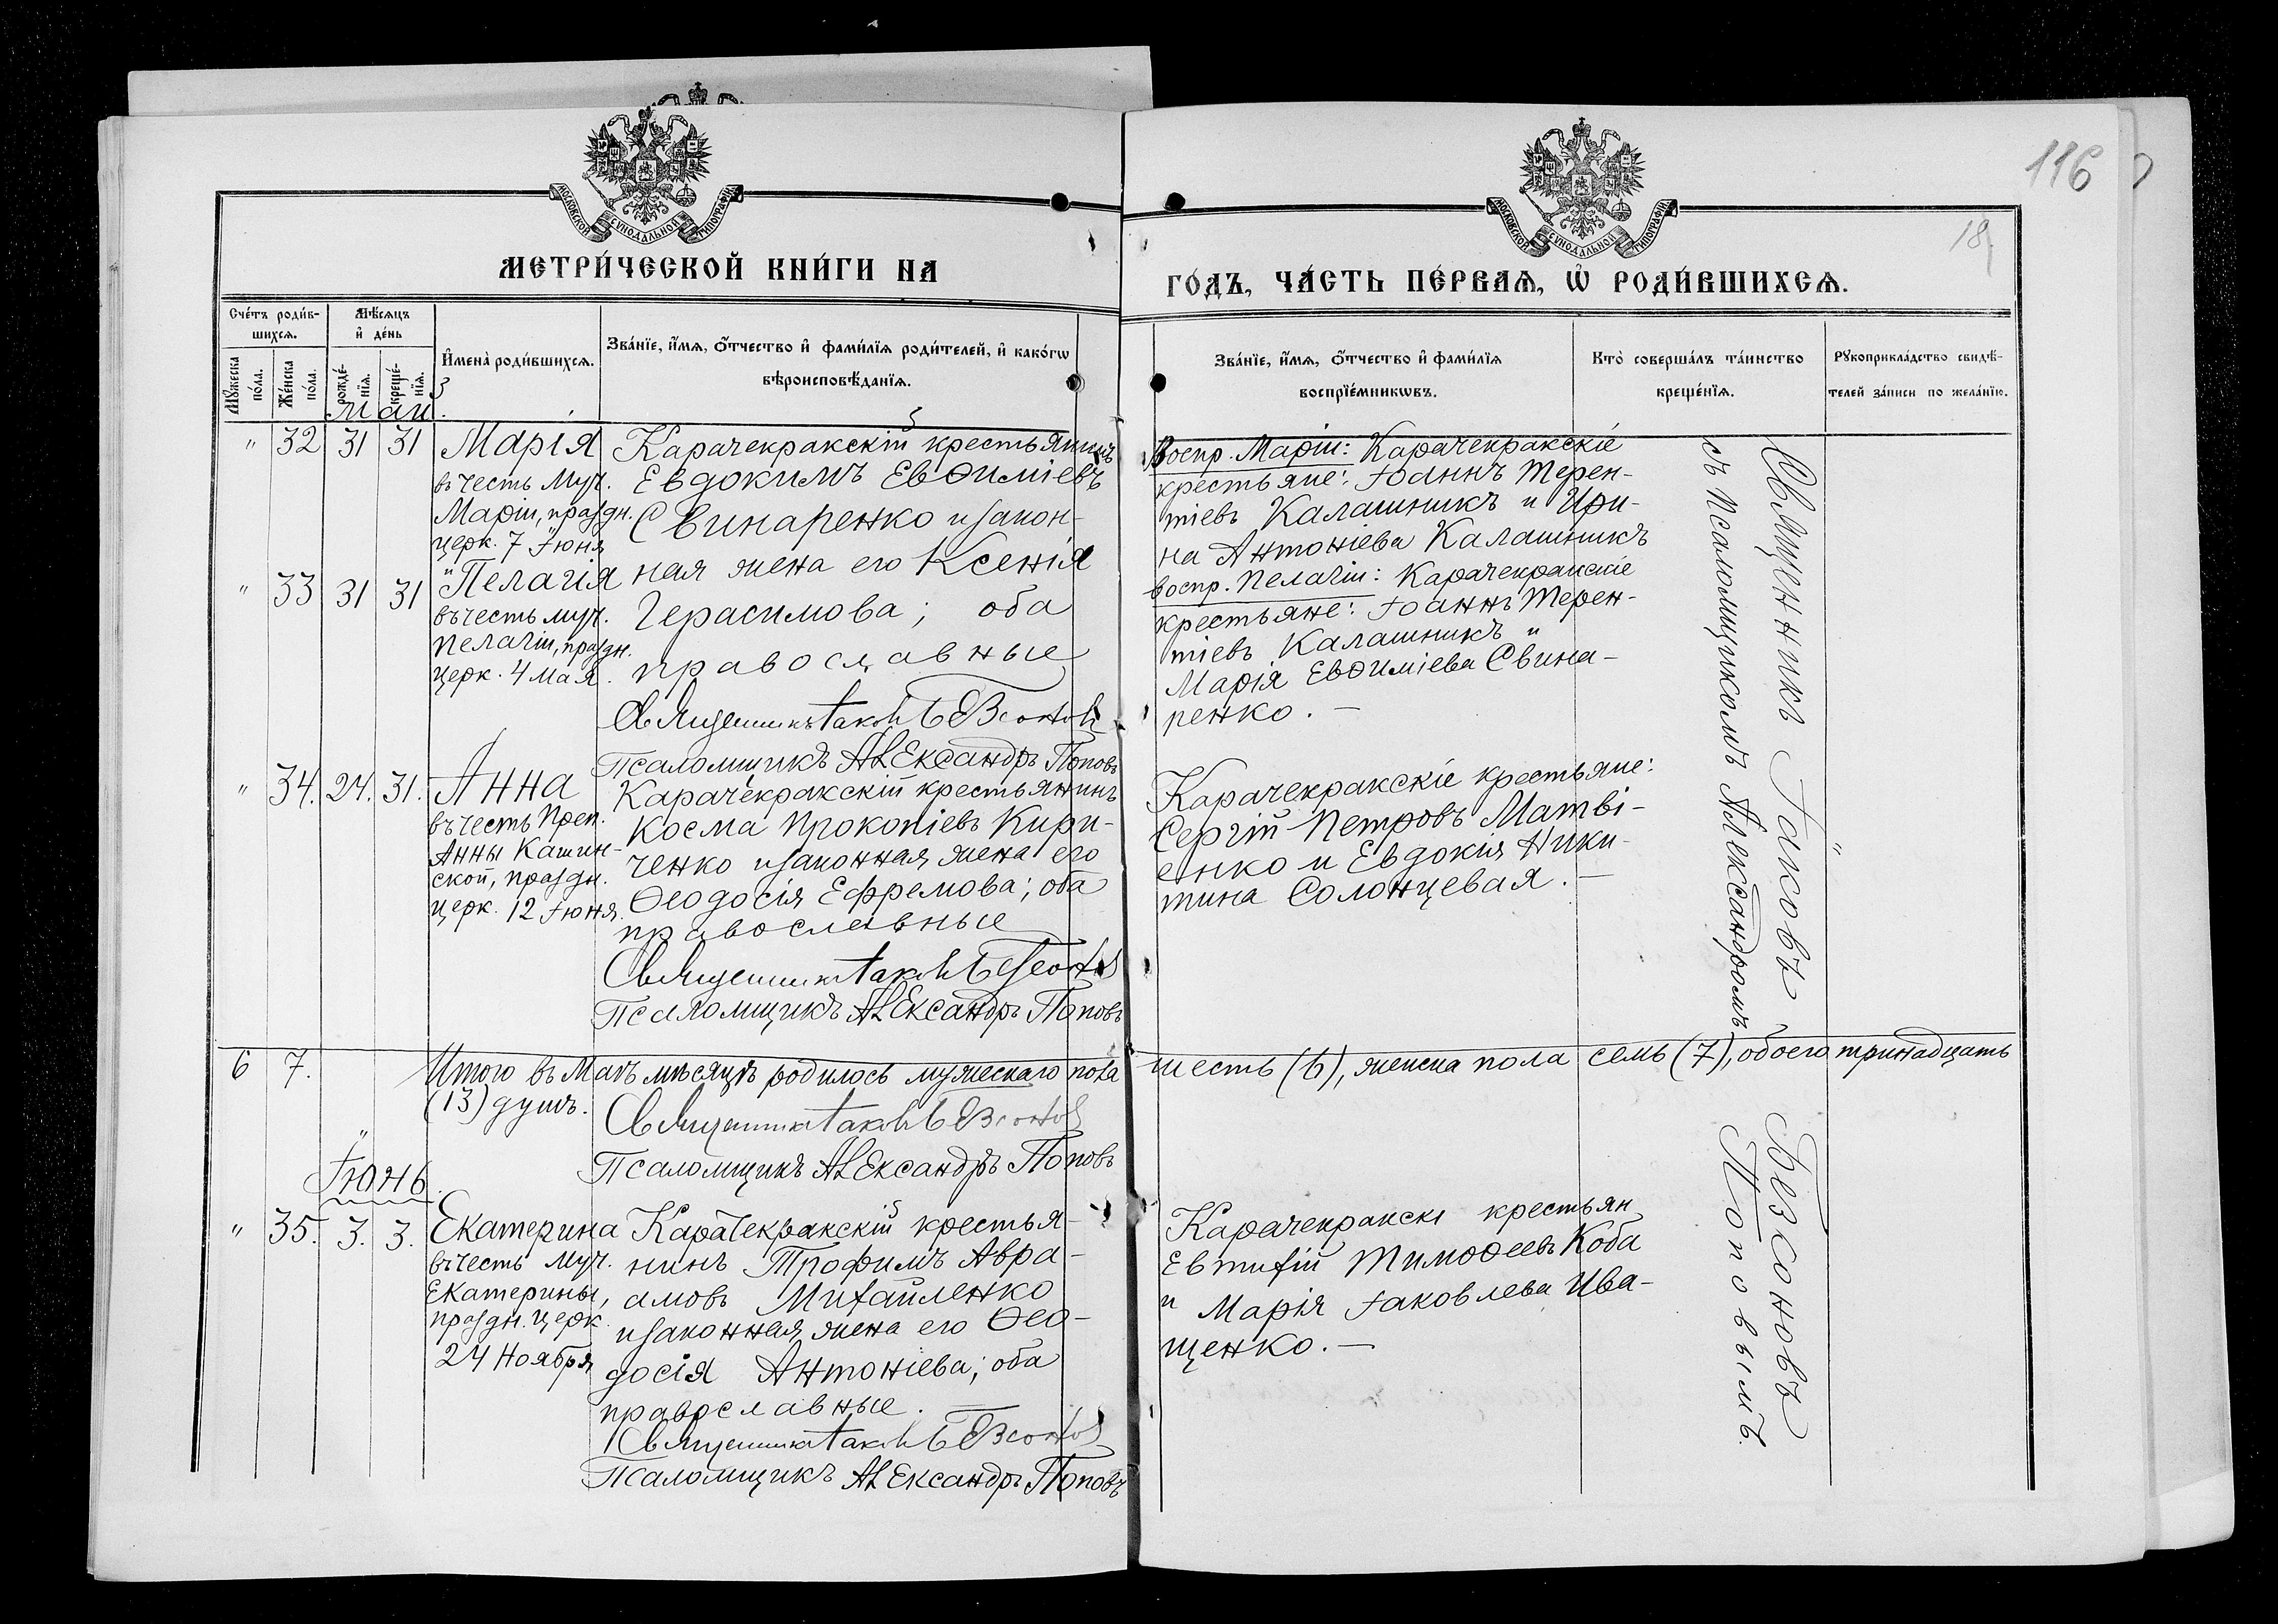 116
18
МОСКОВСКОЙ СѴНОДАЛЬНОЙ ТИПОГРАФІИ
МОСКОВСКОЙ СѴНОДАЛЬНОЙ ТИПОГРАФІИ
МЕТРИ́ЧЕСКОЙ КНИ́ГИ НА
ГО́ДЪ, ЧА́СТЬ ПЕ́РВАѦ, Ѡ҆ РОДИ́ВШИХСѦ.
Сче́тъ роди́в-
шихсѧ.
Мꙋ́жеска
по́ла.
Же́нска
по́ла.
Мѣ́сѧцъ
и҆ де́нь
рожде́-
нїѧ.
креще́-
нїѧ.
И҆мена̀ роди́вшихсѧ.
Зва́нїе, и҆́мѧ, ѻ҆́тчество и҆ фами́лїѧ роди́телей, и҆ како́гѡ
вѣроисповѣ́данїѧ.
Зва́нїе, и҆́мѧ, ѻ҆́тчество и҆ фами́лїѧ
воспрїе́мникѡвъ.
Кто̀ соверша́лъ та́инство
креще́нїѧ.
Рꙋкоприкла́дство свидѣ́-
телей за́писи по жела́нїю.
Май.
" 32 31 31
Марія
въ честь Муч.
Маріи, праздн.
церк. 7 Іюня
" 33 31 31
Пелагія
въ честь муч.
Пелагіи, праздн.
церк. 4 мая.
Карачекракскій крестьянинъ
Евдокимъ Евѳиміевъ
Свинаренко и закон-
ная жена его Ксенія
Герасимова; оба
православные
Священникъ Іаковъ Безсоновъ
Псаломщикъ Александръ Поповъ
Воспр. Маріи: Карачекракскіе
крестьяне: Іоаннъ Терен-
тіевъ Калашникъ и Ири-
на Антоніева Калашникъ
воспр. Пелагіи: Карачекракскіе
крестьяне: Іоаннъ Терен-
тіевъ Калашникъ и
Марія Евѳиміева Свина-
ренко. —
" 34. 24. 31.
Анна
въ честь Преп.
Анны Кашин-
ской, праздн.
церк. 12 Іюня.
Карачекракскій крестьянинъ
Косма Прокопіевъ Кири-
ченко и законная жена его
Ѳеодосія Ефремова; оба
православные
Священникъ Іаковъ Безсоновъ
Псаломщикъ Александръ Поповъ
Карачекракскіе крестьяне:
Сергій Петровъ Матві-
енко и Евдокія Ники-
тина Солонцевая. —
6 7.
Итого въ Маѣ мѣсяцѣ родилось мужескаго пола шесть (6), женска пола семь (7), обоего тринадцать
(13) душъ.
Священникъ Іаковъ Безсоновъ
Псаломщикъ Александръ Поповъ
Іюнь.
" 35. 3. 3.
Екатерина
въ честь Муч.
Екатерины,
праздн. церк.
24 Ноября
Карачекракскій крестья-
нинъ Трофимъ Авра-
амовъ Михайленко
и законная жена его Ѳео-
досія Антоніева; оба
православные.
Священникъ Іаковъ Безсоновъ
Псаломщикъ Александръ Поповъ
Карачекракскі крестьян
Евтихій Тимоѳеевъ Коба
и Марія Іаковлева Ива-
щенко. —
Священникъ Іаковъ Безсоновъ
съ Псаломщикомъ Александромъ Поповымъ.